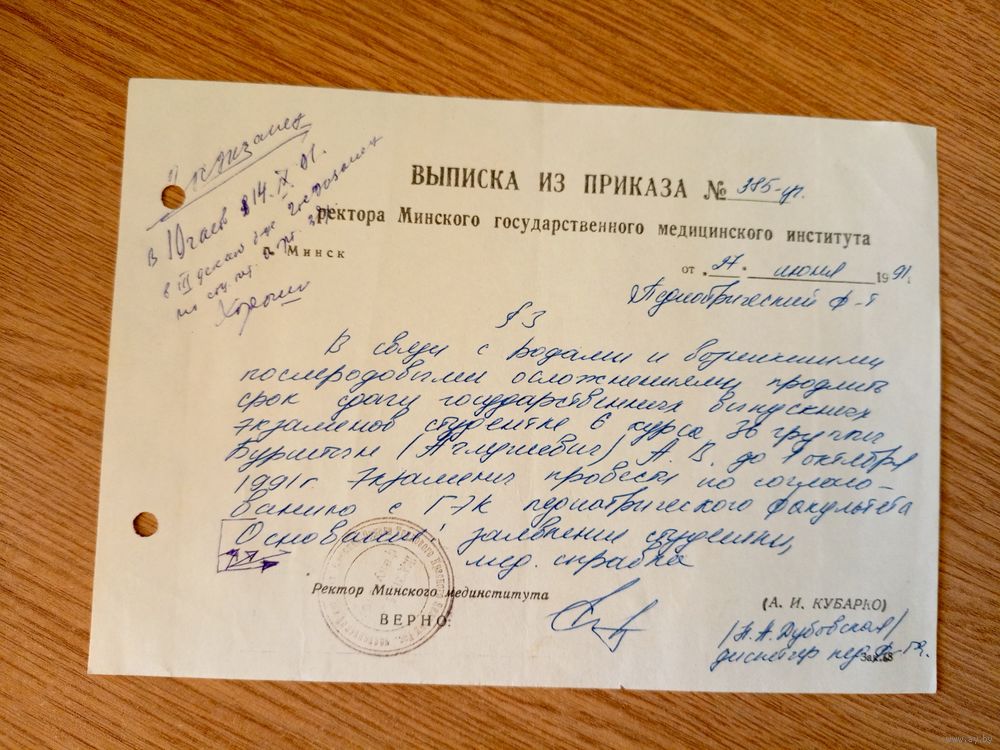 экзамен
В 10 часов 14.IX.91.
в III
Хорошо
ВЫПИСКА ИЗ ПРИКАЗА № 385-уч.
ректора Минского государственного медицинского института
г. Минск
от „27“ июня 1991.
Педиатрический ф-т
§ 3
В связи с родами и возникшими
послеродовыми осложнениями продлить
срок сдачи государственных выпускных
экзаменов студентке 6 курса 36 группы
Бурштын А. В. до 1 октября
1991 г. Экзамены провести по согласо-
ванию с ГЭК педиатрического факультета
Основание: заявление студентки,
мед. справка
Ректор Минского мединститута
(А. И. КУБАРКО)
ВЕРНО:
/Н. А. Дубовская/
диспетчер пед. ф-та.
Зак. 68
www.ay.by